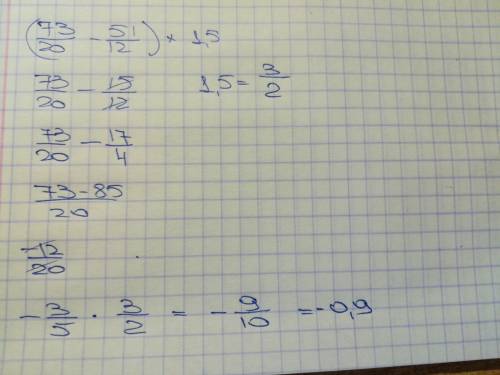 (73/20 - 51/12) × 1,5
73/20 - 15/12 1,5 = 3/2
73/20 - 17/4
73-85/20
-12/20
-3/5 · 3/2 = -9/10 = -0,9